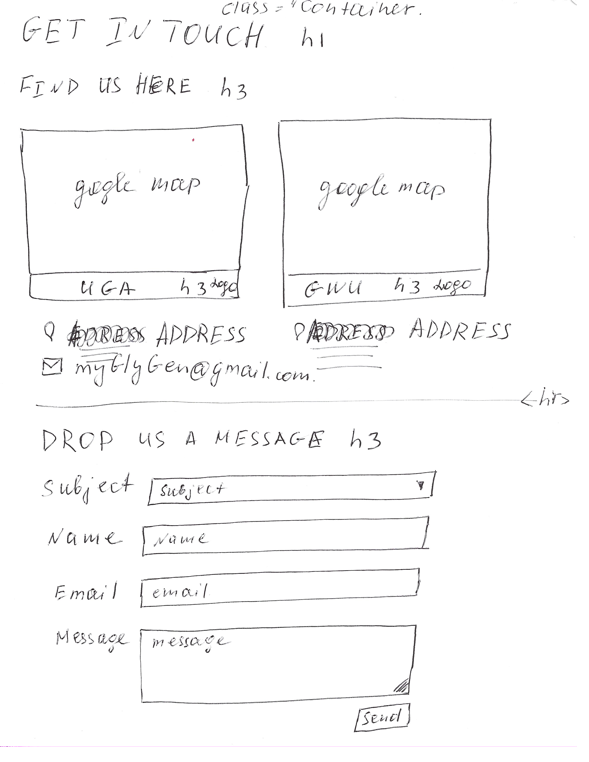 class = "Container.
GET IN TOUCH h1
FIND US HERE h3
google map
google map
UGA h3 Logo
GWU h3 Logo
ADDRESS
ADDRESS
myGlyGen@gmail.com.
<hr>
DROP US A MESSAGE h3
Subject
Subject
Name
Name
Email
email
Message
message
Send